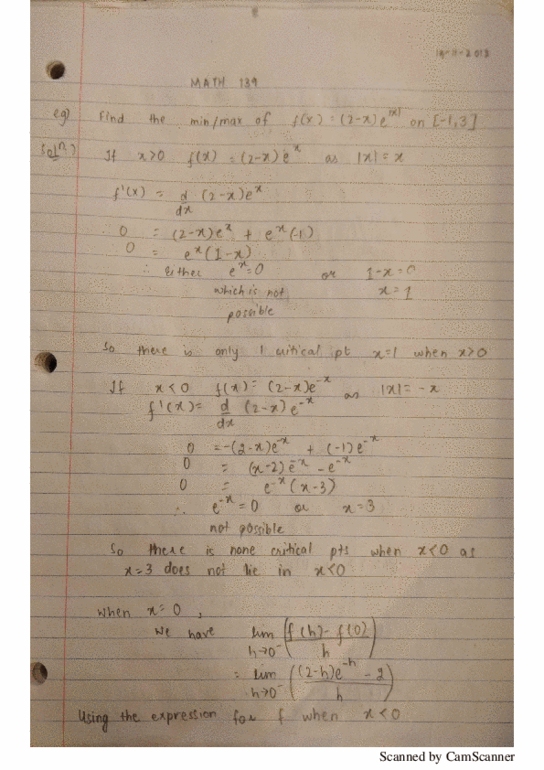 19-11-2018
MATH 139
eg) Find the min/max of f(x) = (2-x)e^|x| on [-1,3]
Solⁿ:) If x>0 f(x) = (2-x)e^x as |x| = x
f'(x) = d/dx (2-x)e^x
0 = (2-x)e^x + e^x(-1)
0 = e^x(1-x)
∴ Either e^x=0 or 1-x=0
which is not x=1
possible
So there is only 1 critical pt x=1 when x>0
If x<0 f(x) = (2-x)e^-x as |x| = -x
f'(x) = d/dx (2-x)e^-x
0 = -(2-x)e^-x + (-1)e^-x
0 = (x-2)e^-x - e^-x
0 = e^-x(x-3)
∴ e^-x = 0 or x=3
not possible
So there is none critical pts when x<0 as
x=3 does not lie in x<0
When x=0,
We have lim h→0⁻ (f(h)-f(0)/h)
= lim h→0⁻ ((2-h)e^-h - 2/h)
Using the expression for f when x<0
Scanned by CamScanner